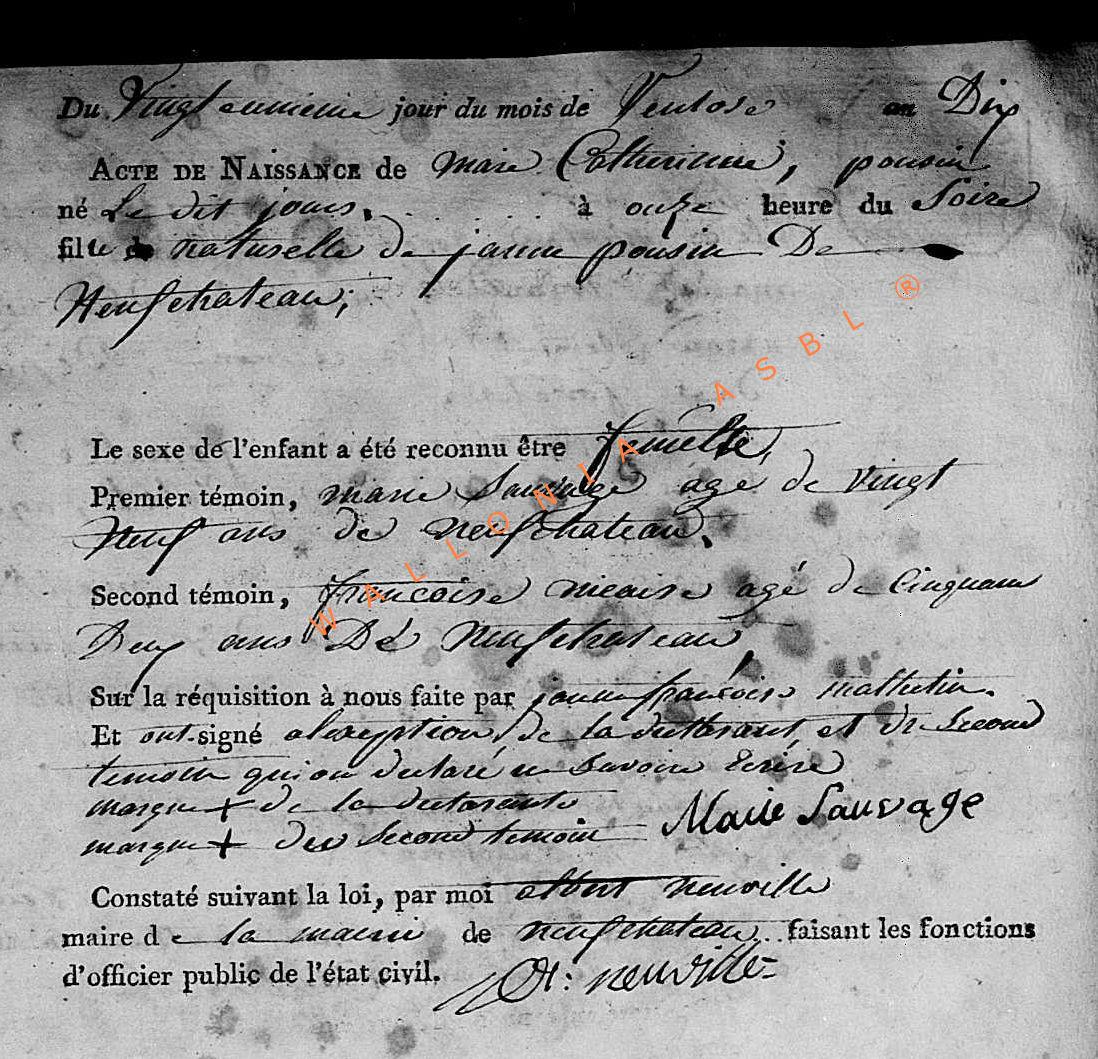 Du Vingt unieme jour du mois de Ventose an Dix
ACTE DE NAISSANCE de marie Catherinne, ponsin
né Le dit jours. à onze heure du Soire
fille naturelle de janne ponsin De
Neufchateau;
Le sexe de l'enfant a été reconnu être femelle,
Premier témoin, marie Sauvage agé de vingt
Neuf ans de neufchateau.
Second témoin, francoise nicaise agé de Cinquante
Deux ans De Neufchateau,
Sur la réquisition à nous faite par francoise mathelin.
Et ont signé alexeption de la declarant et de second
temoin qui on declaré ne Savoir Ecrire
marque + de la declarante
marque + du Second temoin Marie Sauvage
Constaté suivant la loi, par moi albert neuville
maire de la mairie de neufchateau faisant les fonctions
d'officier public de l'état civil. A: neuville
WALLONIA ASBL ®